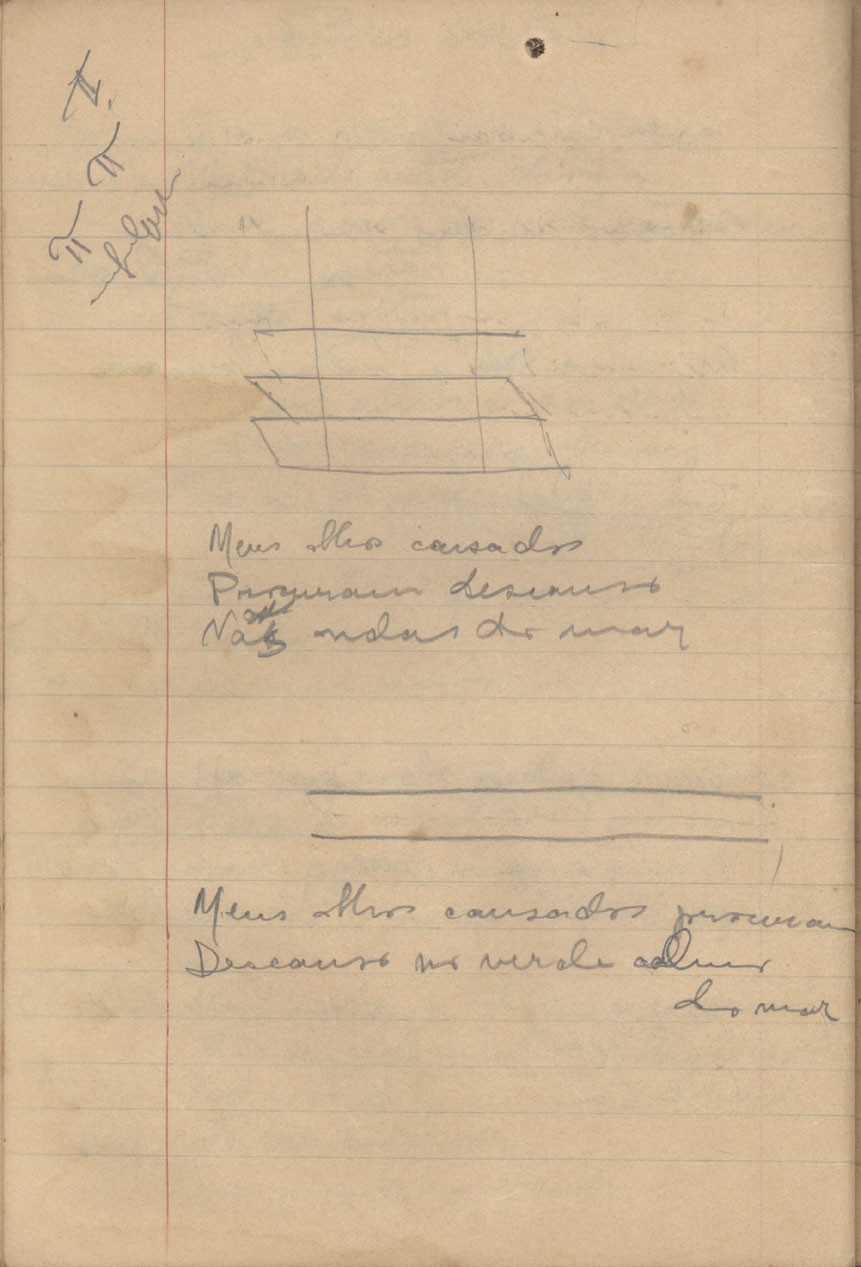 Meus olhos cansados
Procuram descanso
Nas ondas do mar
Meus olhos cansados procuram
Descanso no verde calmo
do mar